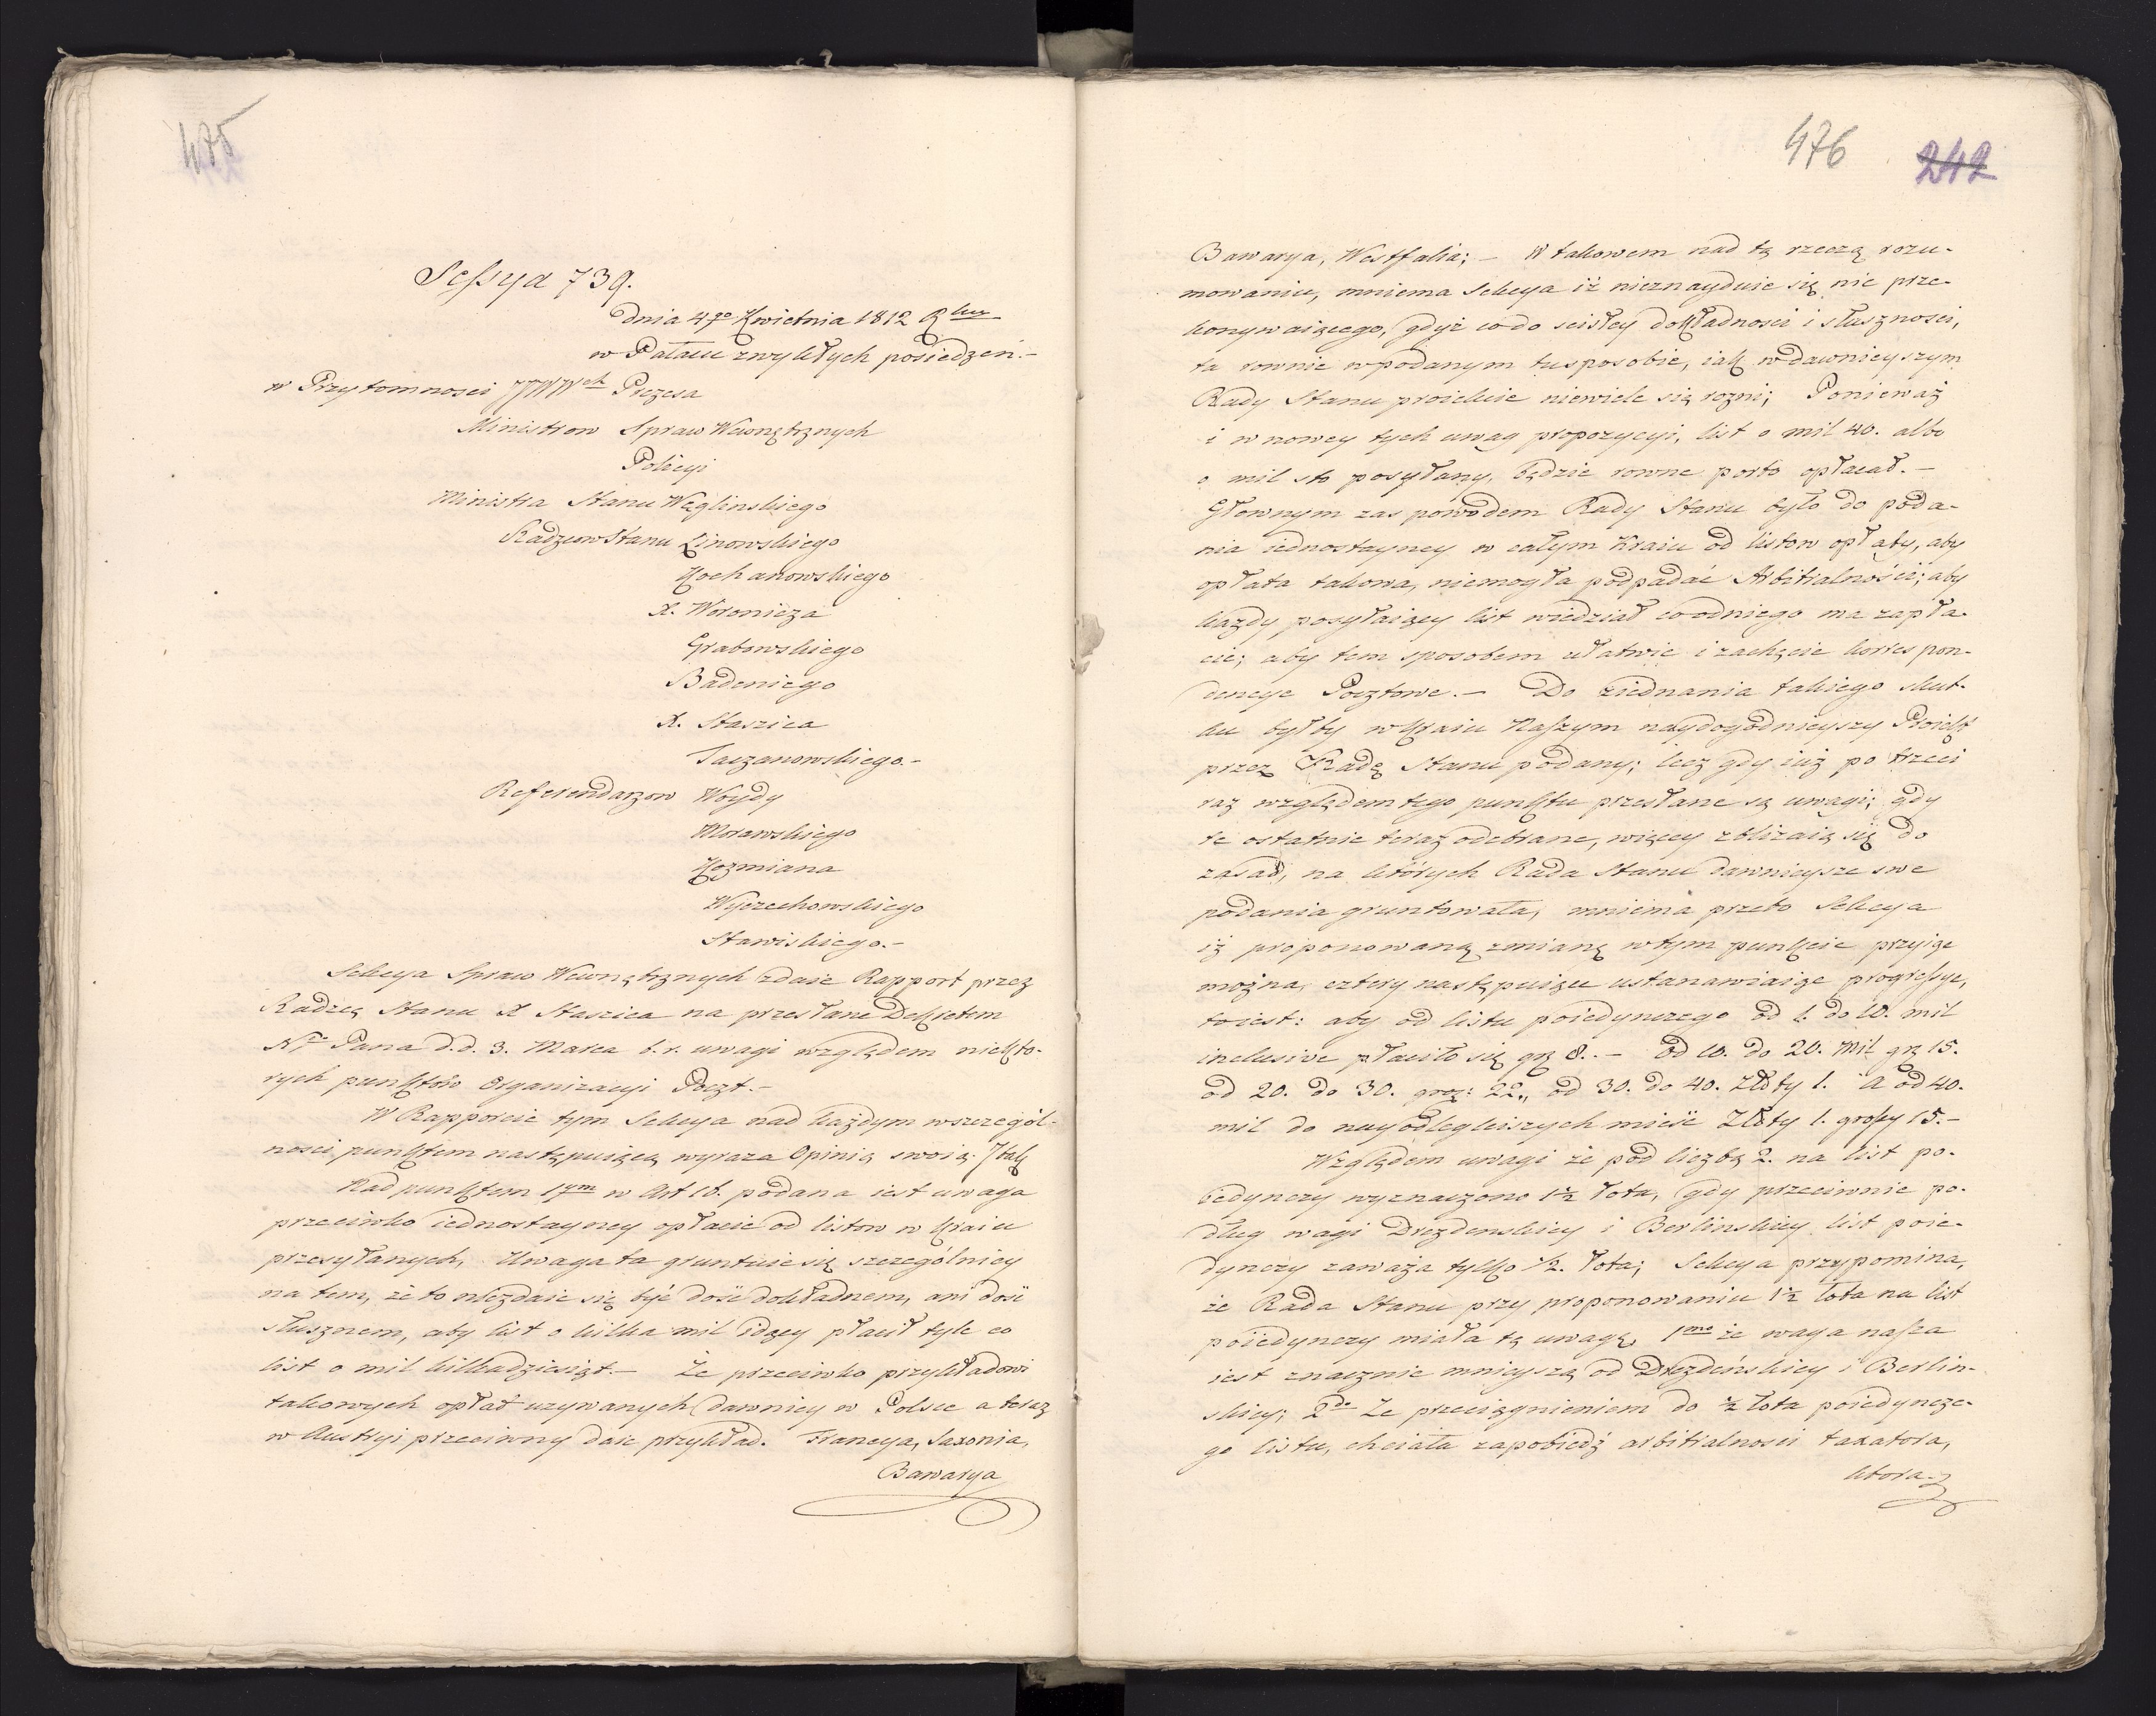 475
Sessya 739.
Dnia 4go Kwietnia 1812 Rku
w Pałacu zwykłych posiedzeń.-
w Przytomnosci JJWWch Prezesa
Ministrow Spraw Wewnętrznych
Policyi
Ministra Stanu Węglinskiego
Radzcow Stanu Linowskiego
Kochanowskiego
X. Woronicza
Grabowskiego
Badeniego
X. Staszica
Taczanowskiego.-
Referendarzow Woydy
Morawskiego
Kozmiana
Wyczechowskiego
Stawiskiego.-
Sekcya Spraw Wewnętrznych zdaie Rapport przez
Radzcę Stanu X Staszica na przesłane Dekretem
Ngo Pana d.d. 3. Marca b.r. uwagi względem niekto-
rych punktów Organizacyi Poczt.-
W Rapporcie tym Sekcya nad każdym wszczegól-
nosci punktem następuiącą wyraza Opinią swoią. I tak
Nad punktem 1ym w Art 16. podana iest uwaga
przeciwko iednostayney opłacie od listow w Kraiu
przesyłanych. Uwaga ta gruntuie się szczególniey
na tem, że to niezdaie się być dość dokładnem, ani dość
słusznem, aby list o kilka mil idący płacił tyle co
list o mil kilkadziesiąt.- Że przeciwko przykładowi
takowych opłat uzywanych dawniey w Polsce a teraz
w Austryi przeciwny daie przykład. Francya, Saxonia,
Bawarya
476 242
Bawarya, Westfalia; - W takowem nad tą rzeczą rozu-
mowaniu, mniema Sekcya iż nieznayduie się nic prze-
konywaiącego, gdyż co do scisłey dokładnosci i słusznosci,
ta rownie w podanym tu sposobie, iak w dawnieyszym
Rady Stanu proiekcie niewiele się rozni; Ponieważ
i w nowey tych uwag propozycyi, list o mil 40. albo
o mil sto posyłany, będzie rowne porto opłacał.-
Głownym zas powodem Rady Stanu było do poda-
nia iednostayney w całym Kraiu od listow opłaty, aby
opłata takowa, niemogła podpadać Arbitralności; aby
każdy posyłaiący list wiedział co od niego ma zapła-
cic; aby tem sposobem ułatwic i zachęcic korrespon-
dencye Pocztowe.- Do ziednania takiego skut-
ku byłby w Kraiu Naszym naydogodnieyszy Proiekt
przez Radę Stanu podany; lecz gdy iuż po trzeci
raz względem tego punktu przesłane są uwagi; gdy
te ostatnie teraz odebrane, więcey zbliżaią się do
zasad, na których Rada Stanu dawnieysze swe
podania gruntowała, mniema przeto Sekcya
iż proponowaną zmianę w tym punkcie przyiąc
można, cztery następuiące ustanawiaiąc progressye,
to iest: aby od listu poiedynczego od 1. do 10. mil
inclusive płaciło się gr 8.- Od 10. do 20. Mil gr 15.
od 20. do 30. groz: 22,, od 30. do 40. Złoty 1. A od 40.
mil do nayodlegleiszych mieisc Złoty 1. groszy 15.-
Względem uwagi że pod liczbą 2. na list po-
iedynczy wyznaczono 1½ łota, gdy przeciwnie po-
dług wagi Drezdenskiey i Berlinskiey list poie-
dynczy zaważa tylko ½. łota; Sekcya przypomina,
że Rada Stanu przy proponowaniu 1½ łota na list
poiedynczy miała tę uwagę, 1mo że waga nasza
iest znacznie mnieyszą od Drezdeńskiey i Berlin-
skiey; 2do Że przeciągnieniem do ½ łota poiedyncze-
go listu, chciała zapobiedź arbitralnosci taxatora,
ktora